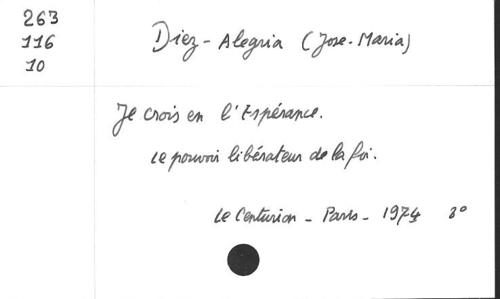 263
116
10
Diez-Alegria (Jose-Maria)
Je crois en l'Espérance.
Le pouvoir libérateur de la foi.
Le Centurion - Paris - 1974 8°